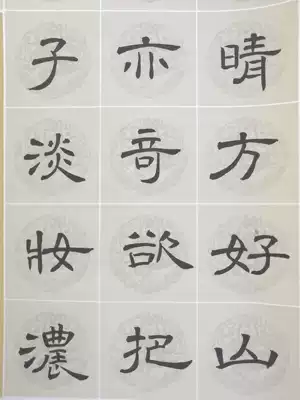 晴方好山
亦奇欲把
子淡妝濃